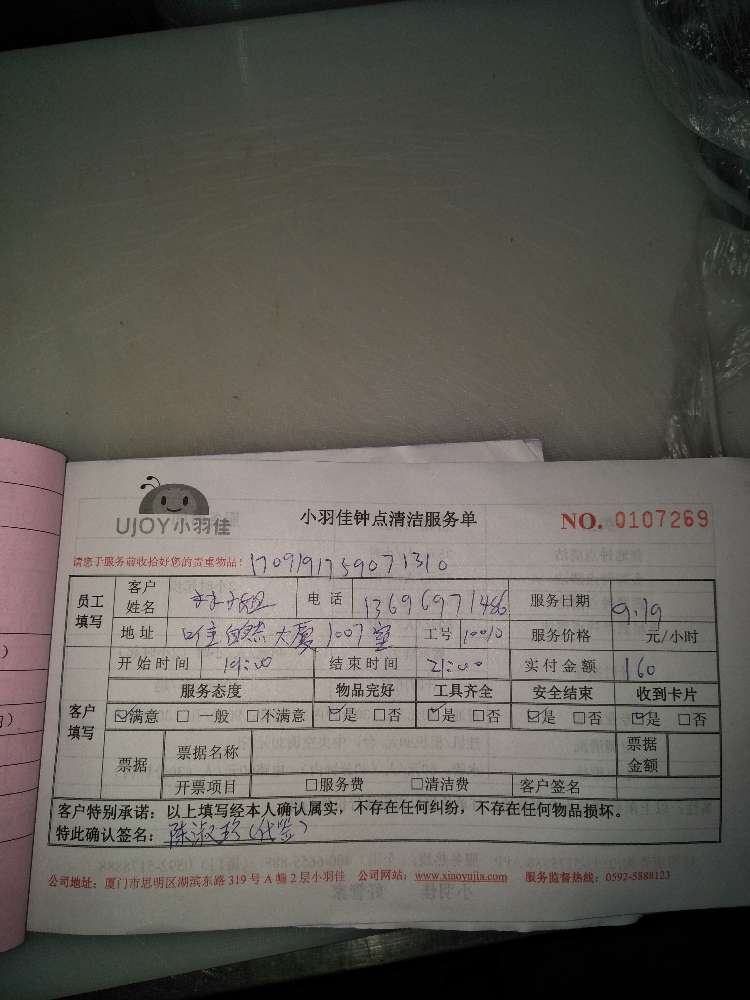 UJOY小羽佳 小羽佳钟点清洁服务单 NO. 0107269
请您于服务前收拾好您的贵重物品! 1709191759071310
员工填写 客户姓名 电话 13696971486 服务日期 9.19
地址 自然大厦1007室 工号 10010 服务价格 元/小时
客户填写 开始时间 19:00 结束时间 21:00 实付金额 160
服务态度 物品完好 工具齐全 安全结束 收到卡片
☑满意 □一般 □不满意 ☑是 □否 ☑是 □否 ☑是 □否 ☑是 □否
票据 票据名称 票据金额
开票项目 □服务费 □清洁费 客户签名
客户特别承诺:以上填写经本人确认属实,不存在任何纠纷,不存在任何物品损坏。
特此确认签名:陈淑珍(代签)
公司地址:厦门市思明区湖滨东路 319 号 A 幢 2 层小羽佳 公司网站:www.xiaoyujia.com 服务监督热线:0592-5888123